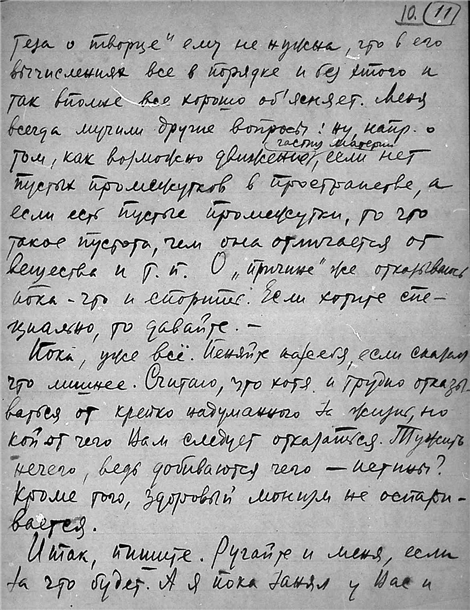 10. (11)
теза о творце" ему не нужна, что в его
вычислениях все в порядке и без этого и
так вполне все хорошо об'ясняет. Меня
всегда мучили другие вопросы: ну, напр. о
частиц материи
том, как возможно движение, если нет
пустых промежутков в пространстве, а
если есть пустые промежутки, то что
такое пустота, чем она отличается от
вещества и т. п. О „причине" же отказываюсь
пока-что и спорить. Если хотите спе-
циально, то давайте. —
Пока, уже всё. Пеняйте на себя, если сказал
что лишнее. Считаю, что хотя и трудно отказы-
ваться от крепко надуманного за жизнь, но
кой от чего Вам следует отказаться. Тужить
нечего, ведь добиваются чего — истины?
Кроме того, здоровый монизм не оспари-
вается.
Итак, пишите. Ругайте и меня, если
за что будет. А я пока занял у Вас и